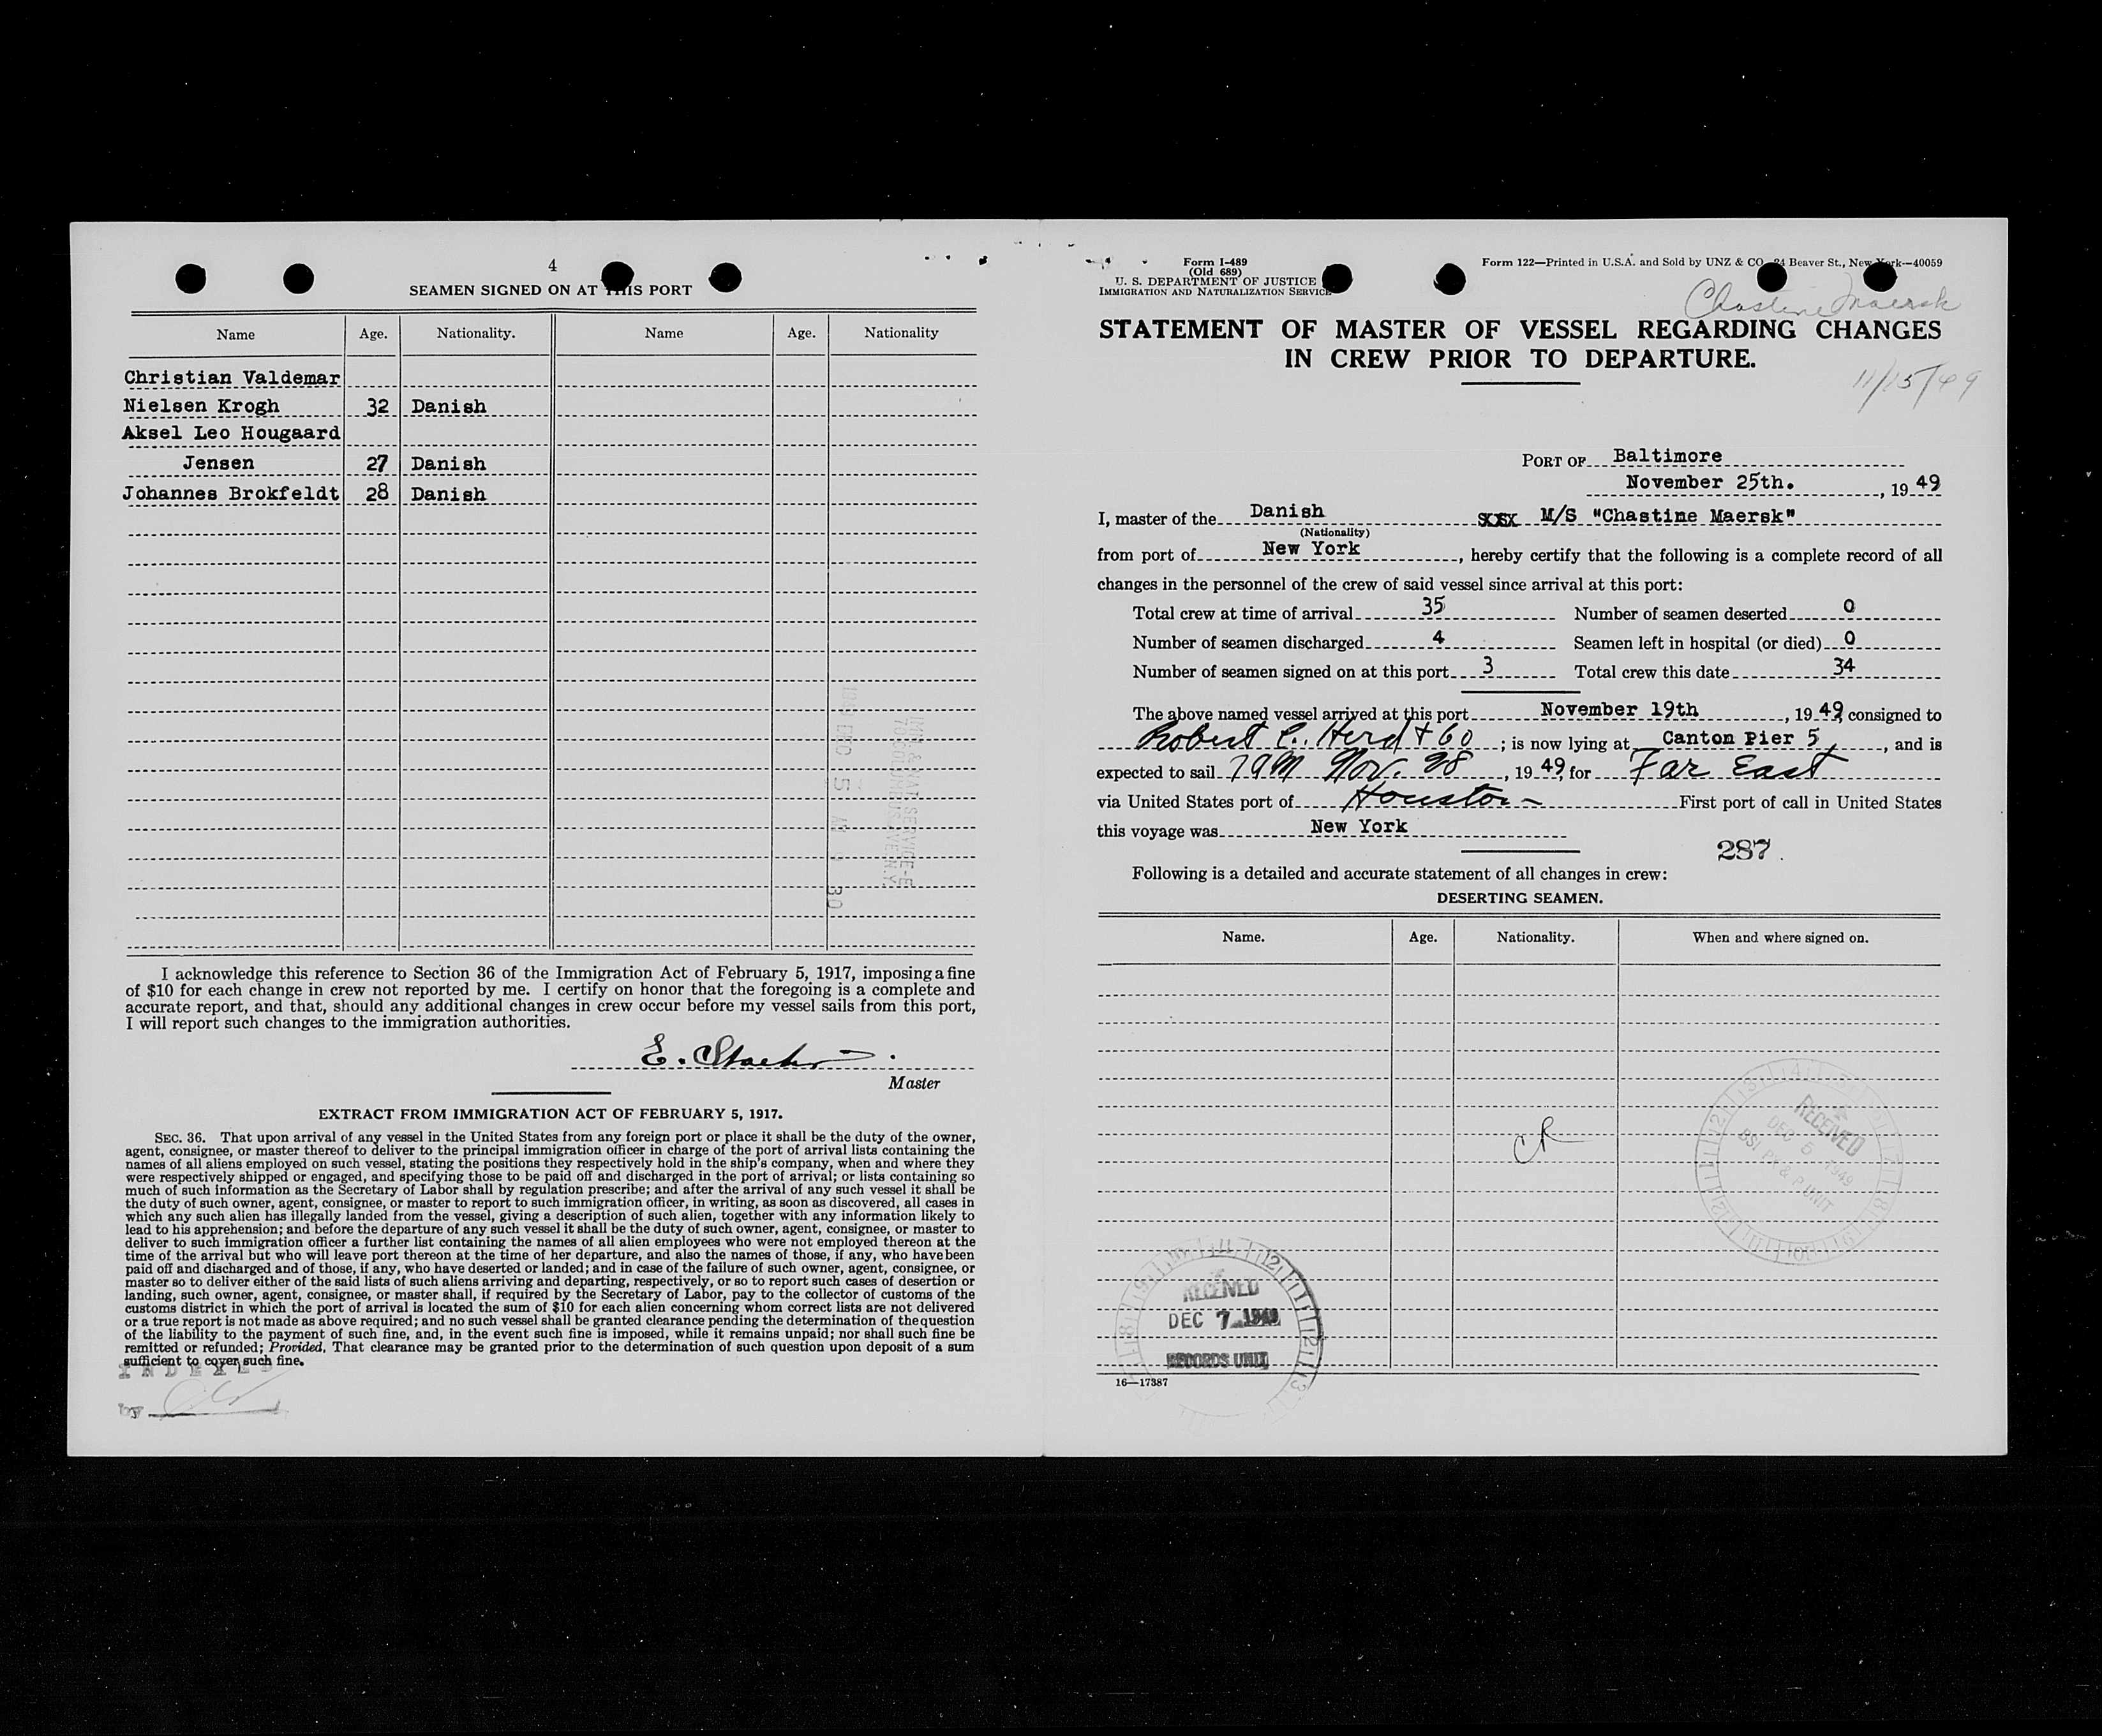 4
SEAMEN SIGNED ON AT THIS PORT
Name Age. Nationality. Name Age. Nationality
Christian Valdemar
Nielsen Krogh 32 Danish
Aksel Leo Hougaard
Jensen 27 Danish
Johannes Brokfeldt 28 Danish
I acknowledge this reference to Section 36 of the Immigration Act of February 5, 1917, imposing a fine
of $10 for each change in crew not reported by me. I certify on honor that the foregoing is a complete and
accurate report, and that, should any additional changes in crew occur before my vessel sails from this port,
I will report such changes to the immigration authorities.
E.
Master
EXTRACT FROM IMMIGRATION ACT OF FEBRUARY 5, 1917.
SEC. 36. That upon arrival of any vessel in the United States from any foreign port or place it shall be the duty of the owner,
agent, consignee, or master thereof to deliver to the principal immigration officer in charge of the port of arrival lists containing the
names of all aliens employed on such vessel, stating the positions they respectively hold in the ship's company, when and where they
were respectively shipped or engaged, and specifying those to be paid off and discharged in the port of arrival; or lists containing so
much of such information as the Secretary of Labor shall by regulation prescribe; and after the arrival of any such vessel it shall be
the duty of such owner, agent, consignee, or master to report to such immigration officer, in writing, as soon as discovered, all cases in
which any such alien has illegally landed from the vessel, giving a description of such alien, together with any information likely to
lead to his apprehension; and before the departure of any such vessel it shall be the duty of such owner, agent, consignee, or master to
deliver to such immigration officer a further list containing the names of all alien employees who were not employed thereon at the
time of the arrival but who will leave port thereon at the time of her departure, and also the names of those, if any, who have been
paid off and discharged and of those, if any, who have deserted or landed; and in case of the failure of such owner, agent, consignee, or
master so to deliver either of the said lists of such aliens arriving and departing, respectively, or so to report such cases of desertion or
landing, such owner, agent, consignee, or master shall, if required by the Secretary of Labor, pay to the collector of customs of the
customs district in which the port of arrival is located the sum of $10 for each alien concerning whom correct lists are not delivered
or a true report is not made as above required; and no such vessel shall be granted clearance pending the determination of the question
of the liability to the payment of such fine, and, in the event such fine is imposed, while it remains unpaid; nor shall such fine be
remitted or refunded; Provided, That clearance may be granted prior to the determination of such question upon deposit of a sum
sufficient to cover such fine.
INDEXED
by
Form I-489
(Old 689)
U. S. DEPARTMENT OF JUSTICE
IMMIGRATION AND NATURALIZATION SERVICE
Form 122—Printed in U.S.A. and Sold by UNZ & CO. 24 Beaver St., New York—40059
Chastine Maersk
STATEMENT OF MASTER OF VESSEL REGARDING CHANGES
IN CREW PRIOR TO DEPARTURE.
11/15/49
PORT OF Baltimore
November 25th. , 19 49
I, master of the Danish xxx M/S "Chastine Maersk"
(Nationality)
from port of New York , hereby certify that the following is a complete record of all
changes in the personnel of the crew of said vessel since arrival at this port:
Total crew at time of arrival 35 Number of seamen deserted 0
Number of seamen discharged 4 Seamen left in hospital (or died) 0
Number of seamen signed on at this port 3 Total crew this date 34
The above named vessel arrived at this port November 19th , 19 49, consigned to
Robert C. Herd & Co ; is now lying at Canton Pier 5, , and is
expected to sail 7 AM Nov. 28 , 19 49, for Far East
via United States port of Houston First port of call in United States
this voyage was New York
287
Following is a detailed and accurate statement of all changes in crew:
DESERTING SEAMEN.
Name. Age. Nationality. When and where signed on.
CR
RECEIVED
DEC 5 1949
RECEIVED
DEC 7 1949
RECORDS UNIT
16—17387